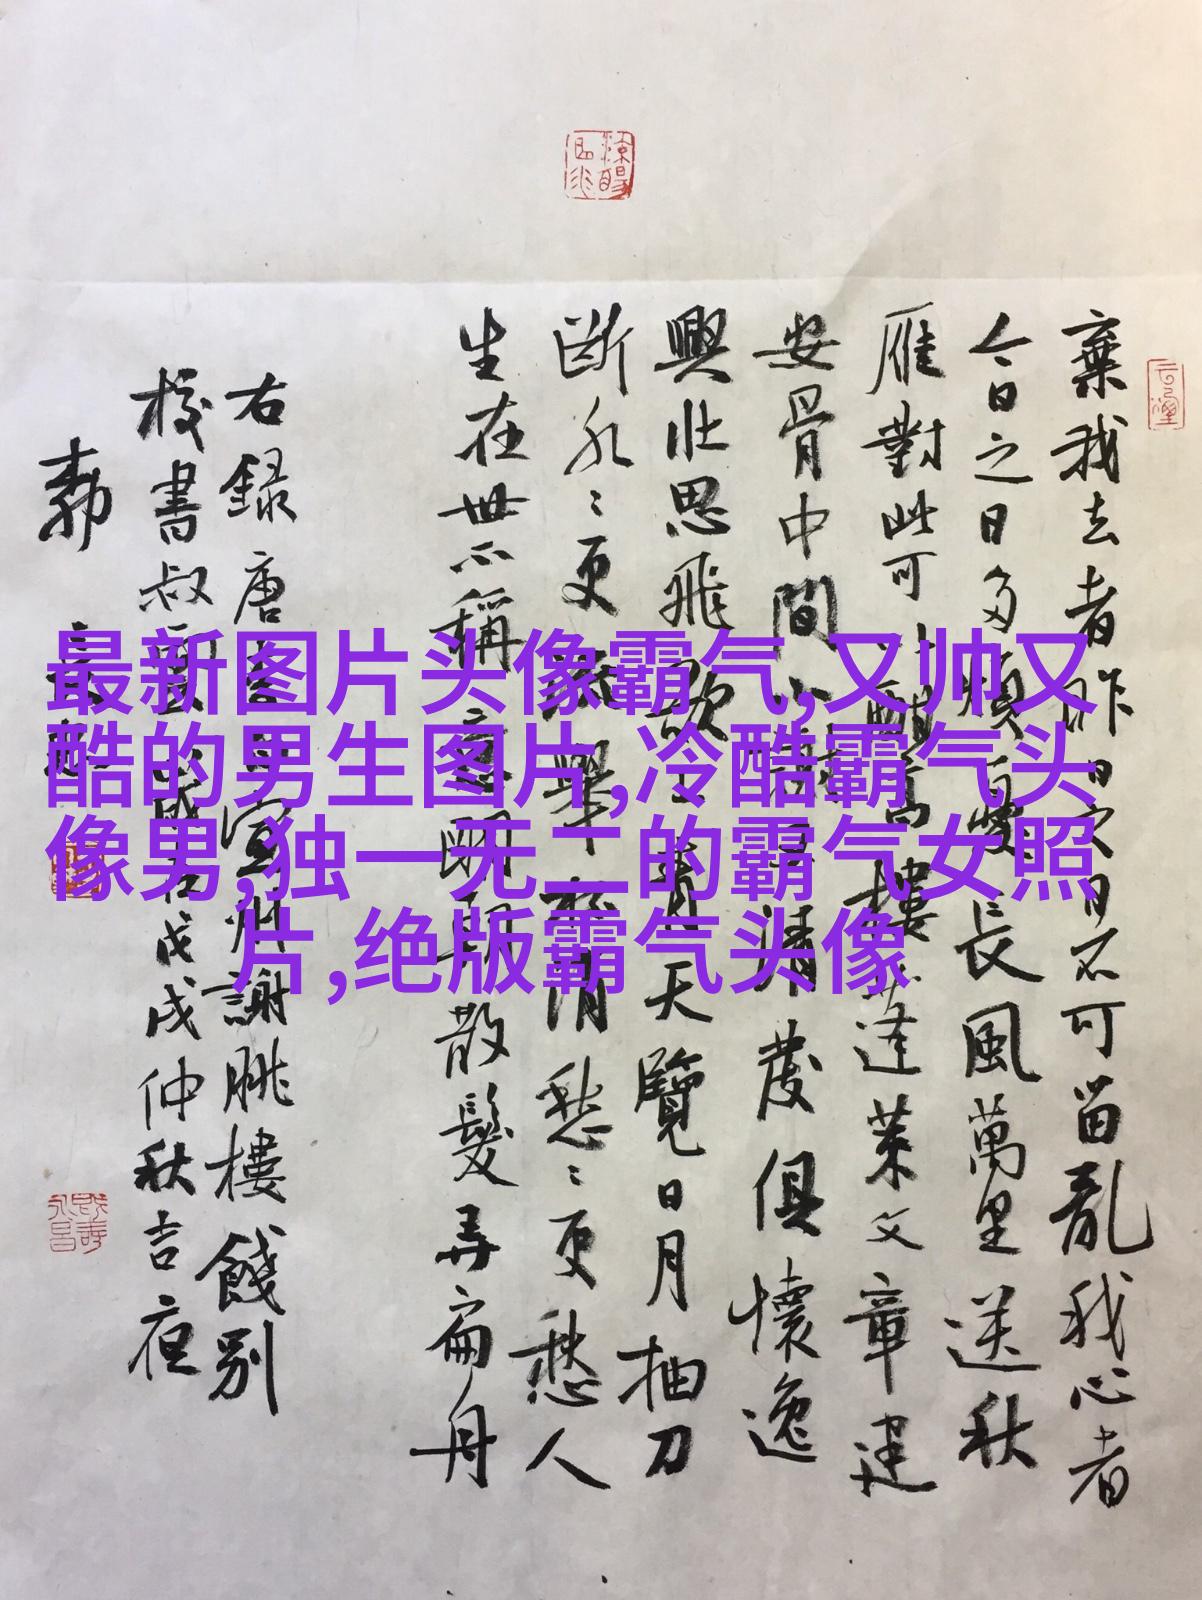 棄我去者昨日之日不可留亂我心者
今日之日多煩憂長風萬里送秋
雁對此可以酣高樓蓬萊文章建
安骨中間小謝又清發俱懷逸
興壯思飛欲上青天覽日月抽刀
斷水〻更流舉杯消愁〻更愁人
生在世不稱意明朝散髮弄扁舟
右録唐李白宣州謝朓樓餞別
校書叔雲戊戌仲秋吉夜
最新图片头像霸气,又帅又
酷的男生图片,冷酷霸气头
像男,独一无二的霸气女照
片,绝版霸气头像